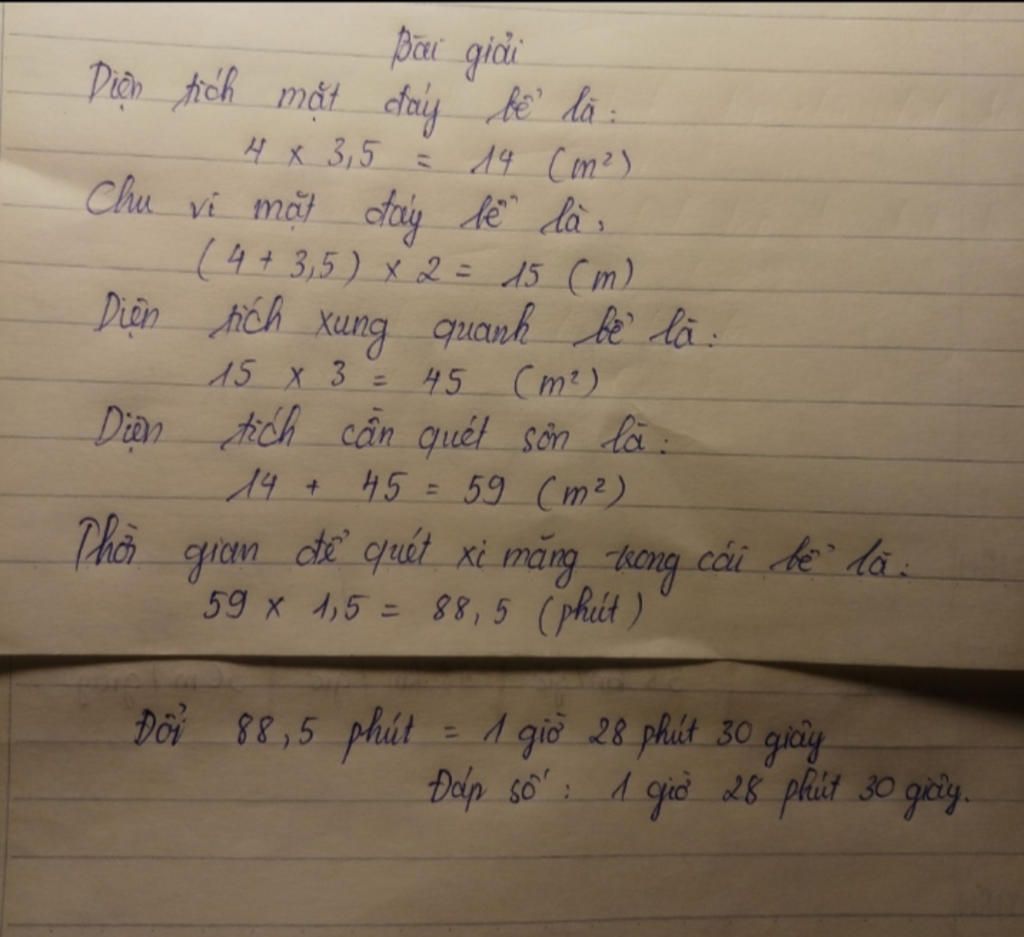 Bài giải
Diện tích mặt đáy bể là:
4 x 3,5 = 14 (m²)
Chu vi mặt đáy bể là,
(4 + 3,5) x 2 = 15 (m)
Diện tích xung quanh bể là:
15 x 3 = 45 (m²)
Diện tích cần quét sơn là:
14 + 45 = 59 (m²)
Thời gian để quét xi măng trong cái bể là:
59 x 1,5 = 88,5 (phút)
Đổi 88,5 phút = 1 giờ 28 phút 30 giây
Đáp số: 1 giờ 28 phút 30 giây.